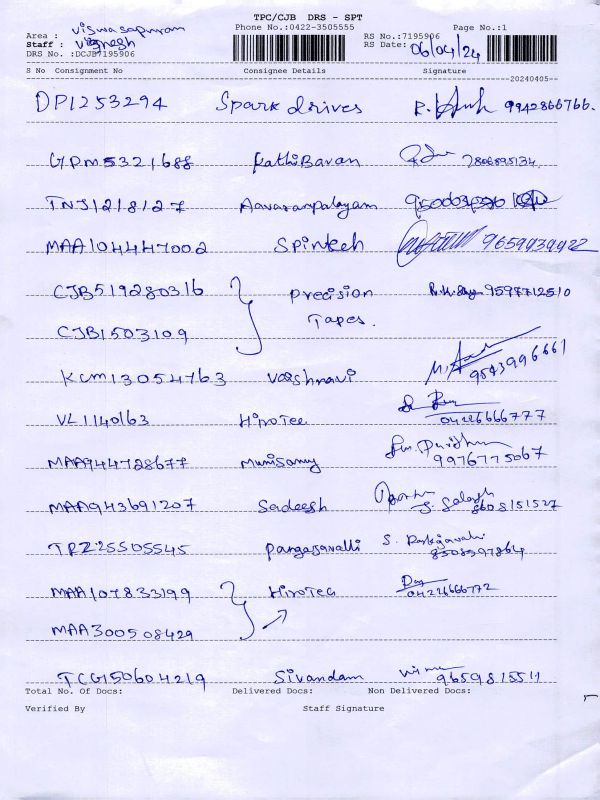 TPC/CJB DRS - SPT
Phone No.:0422-3505555 Page No.:1
Area : viswasapuram
Staff : vignesh
RS No.:7195906
RS Date: 06/04/24
DRS No. :DCJB7195906
S No Consignment No Consignee Details Signature
20240405
DP1253294 Spark drives 9942866766.
GPM5321688 KathiBavan 7806895134
TNJ1218127 Aavarampalayam
MAA104447002 Spintech 9659434422
CJB519280316 Precision 9597712510
CJB1503109 Tapes.
KCM13054763 Vaishnavi 9543996661
VL1140163 HiroTec 04226666777
MAA944728677 Munisamy 9976775067
MAA943691207 Sadeesh 8608151527
TRZ25505545 Pangajavalli 8508597864
MAA107833199 HiroTec 04226666772
MAA300508429
TCG150604219 Sivandam 9659815511
Total No. Of Docs: Delivered Docs: Non Delivered Docs:
Verified By Staff Signature